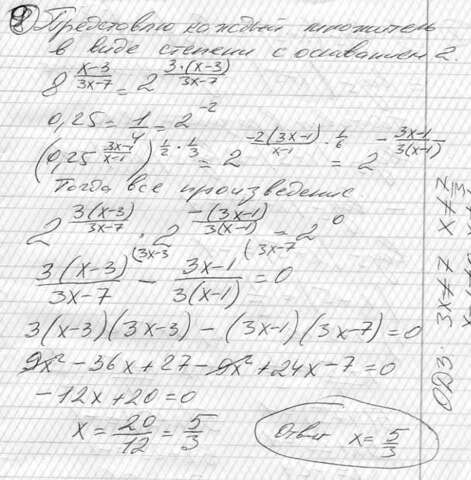 9 Представлю каждый множитель
в виде степени с основанием 2.
8^((x-3)/(3x-7)) = 2^((3·(x-3))/(3x-7))
0,25 = 1/4 = 2^(-2)
(0,25^((3x-1)/(x-1)))^(1/2 · 1/3) = 2^((-2(3x-1))/(x-1) · 1/6) = 2^(-(3x-1)/(3(x-1)))
Тогда все произведение
2^((3(x-3))/(3x-7)) · 2^((-(3x-1))/(3(x-1))) = 2^0
(3x-3 (3x-7
(3(x-3))/(3x-7) - (3x-1)/(3(x-1)) = 0
3(x-3)(3x-3) - (3x-1)(3x-7) = 0
9x² - 36x + 27 - 9x² + 24x - 7 = 0
-12x + 20 = 0
x = 20/12 = 5/3
Ответ x = 5/3
ОДЗ: 3x≠7 x≠7/3